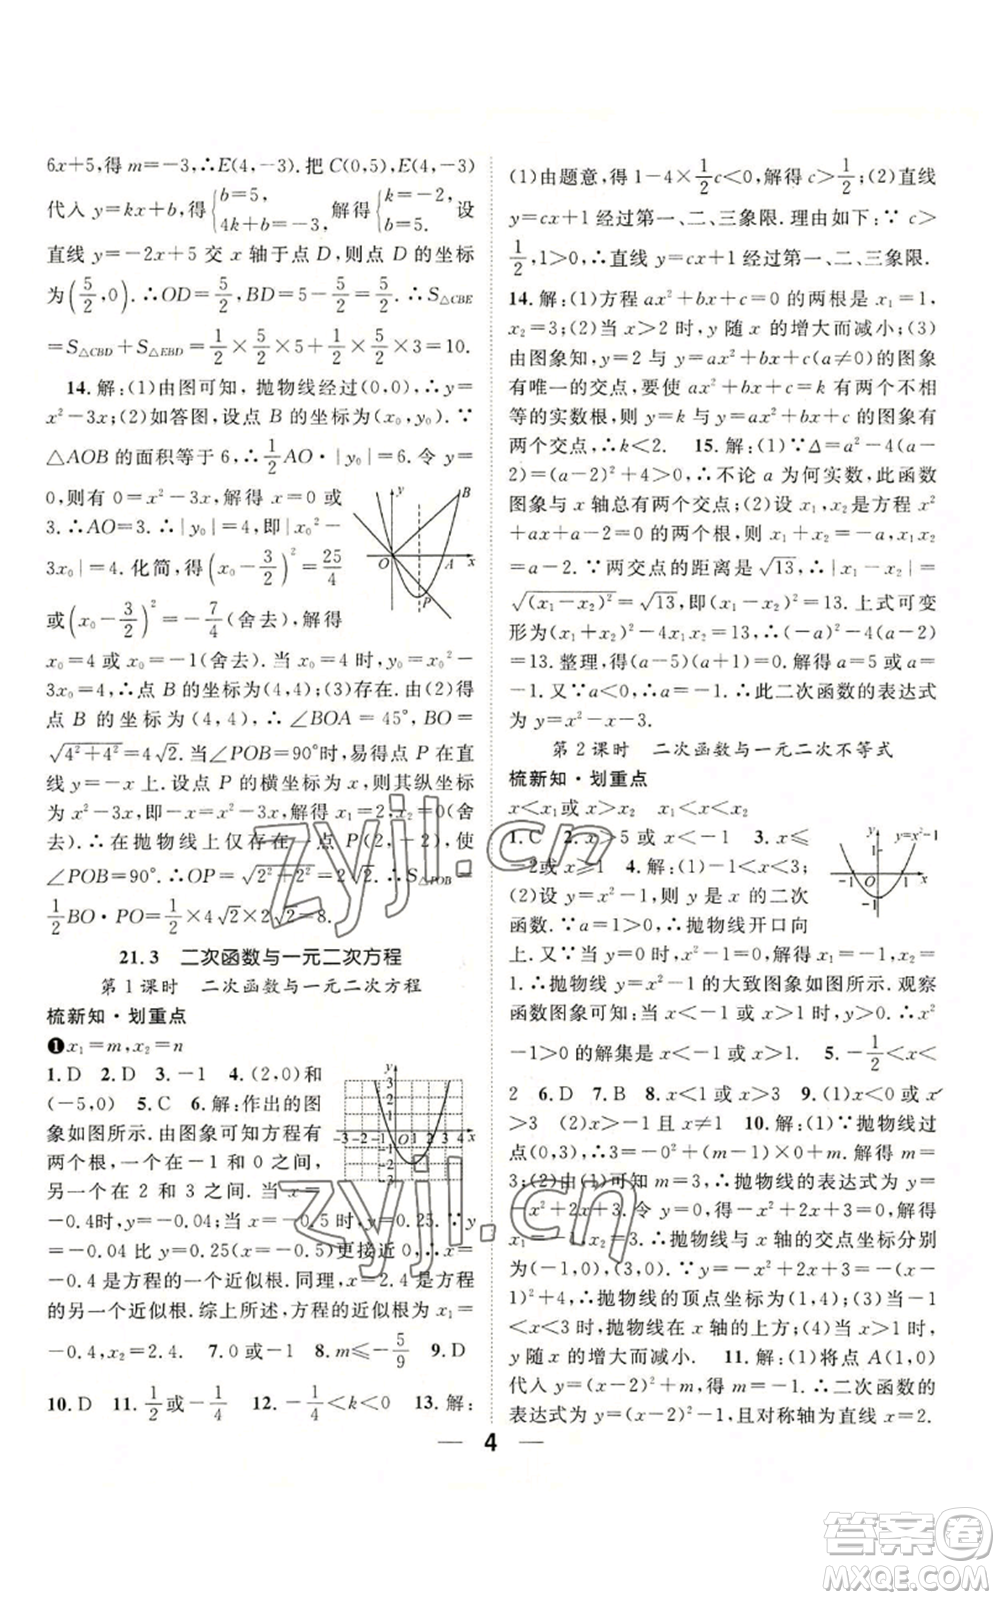 6x+5,得 m=-3,∴E(4,-3).把 C(0,5),E(4,-3)
代入 y=kx+b,得{b=5, 4k+b=-3, 解得{k=-2, b=5. 设
直线 y=-2x+5 交 x 轴于点 D,则点 D 的坐标
为(5/2,0).∴OD=5/2,BD=5-5/2=5/2.∴S△CBE
=S△CBD+S△EBD=1/2×5/2×5+1/2×5/2×3=10.
14.解:(1)由图可知,抛物线经过(0,0),∴y=
x²-3x;(2)如答图,设点 B 的坐标为(x₀,y₀).∵
△AOB 的面积等于 6,∴1/2AO·|y₀|=6.令 y=
0,则有 0=x²-3x,解得 x=0 或 x=
3.∴AO=3.∴|y₀|=4,即|x₀²-
3x₀|=4.化简,得(x₀-3/2)²=25/4
或(x₀-3/2)²=-7/4(舍去).解得
x₀=4 或 x₀=-1(舍去).当 x₀=4 时,y₀=x₀²-
3x₀=4,∴点 B 的坐标为(4,4);(3)存在.由(2)得
点 B 的坐标为(4,4),∴∠BOA=45°,BO=
√(4²+4²)=4√2.当∠POB=90°时,易得点 P 在直
线 y=-x 上.设点 P 的横坐标为 x,则其纵坐标为
x²-3x,即-x=x²-3x,解得 x₁=2,x₂=0(舍
去).∴在抛物线上仅存在一点 P(2,-2),使
∠POB=90°.∴OP=√(2²+2²)=2√2.∴S△POB=
1/2BO·PO=1/2×4√2×2√2=8.
y
B
O
A
x
P
21.3 二次函数与一元二次方程
第1课时 二次函数与一元二次方程
梳新知·划重点
❶x₁=m,x₂=n
1.D 2.D 3.-1 4.(2,0)和
(-5,0) 5.C 6.解:作出的图
象如图所示.由图象可知方程有
两个根,一个在-1 和 0 之间,
另一个在 2 和 3 之间.当 x=
-0.4 时,y=-0.04;当 x=-0.5 时,y=0.25.∵y
=-0.04 比 y=0.25(x=-0.5)更接近 0,∴x=
-0.4 是方程的一个近似根.同理,x=2.4 是方程
的另一个近似根.综上所述,方程的近似根为 x₁=
-0.4,x₂=2.4. 7.0 或-1 8.m≤-5/9 9.D
10.D 11.1/2或-1/4 12.-1/4<k<0 13.解:
(1)由题意,得 1-4×1/2c<0,解得 c>1/2;(2)直线
y=cx+1 经过第一、二、三象限.理由如下:∵c>
1/2,1>0,∴直线 y=cx+1 经过第一、二、三象限.
14.解:(1)方程 ax²+bx+c=0 的两根是 x₁=1,
x₂=3;(2)当 x>2 时,y 随 x 的增大而减小;(3)
由图象知,y=2 与 y=ax²+bx+c(a≠0)的图象
有唯一的交点,要使 ax²+bx+c=k 有两个不相
等的实数根,则 y=k 与 y=ax²+bx+c 的图象有
两个交点,∴k<2. 15.解:(1)∵Δ=a²-4(a-
2)=(a-2)²+4>0,∴不论 a 为何实数,此函数
图象与 x 轴总有两个交点;(2)设 x₁,x₂是方程 x²
+ax+a-2=0 的两个根,则 x₁+x₂=-a,x₁x₂
=a-2.∵两交点的距离是√13,∴|x₁-x₂|=
√(x₁-x₂)²=√13,即(x₁-x₂)²=13.上式可变
形为(x₁+x₂)²-4x₁x₂=13,∴(-a)²-4(a-2)
=13.整理,得(a-5)(a+1)=0.解得 a=5 或 a=
-1.又∵a<0,∴a=-1.∴此二次函数的表达式
为 y=x²-x-3.
第2课时 二次函数与一元二次不等式
梳新知·划重点
x<x₁或 x>x₂ x₁<x<x₂
1.C 2.x>5 或 x<-1 3.x≤
-2或 x≥1 4.解:(1)-1<x<3;
(2)设 y=x²-1,则 y 是 x 的二次
函数.∵a=1>0,∴抛物线开口向
上.又∵当 y=0 时,x²-1=0,解得 x₁=1,x₂=-
1.∴抛物线 y=x²-1 的大致图象如图所示.观察
函数图象可知:当 x<-1 或 x>1 时,y>0.∴x²-
1>0 的解集是 x<-1 或 x>1. 5.-1/2<x<
2 6.D 7.B 8.x<1 或 x>3 9.(1)x<0 或 x
>3 (2)x>-1 且 x≠1 10.解:(1)∵抛物线过
点(0,3),∴3=-0²+(m-1)×0+m.解得 m=
3;(2)由(1)知 m=3,∴抛物线的表达式为 y=
-x²+2x+3.令 y=0,则-x²+2x+3=0,解得
x₁=-1,x₂=3.∴抛物线与 x 轴的交点坐标分别
为(-1,0),(3,0).∵y=-x²+2x+3=-(x-
1)²+4,∴抛物线的顶点坐标为(1,4);(3)当-1
<x<3 时,抛物线在 x 轴的上方;(4)当 x>1 时,
y 随 x 的增大而减小. 11.解:(1)将点 A(1,0)
代入 y=(x-2)²+m,得 m=-1,∴二次函数的
表达式为 y=(x-2)²-1,且对称轴为直线 x=2.
y
y=x²-1
1
-1
O
1
x
— 4 —
zyjl.cn
zyjl.cn
答案圈
MXQE.COM